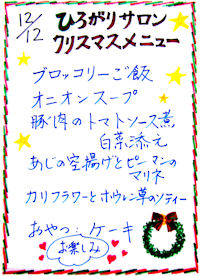 12/12
ひろがりサロン
クリスマスメニュー
ブロッコリーご飯
オニオンスープ
豚肉のトマトソース煮
白菜添え
あじの空揚げとピーマンの
マリネ
カリフラワーとホウレン草のソティー
おやつ:ケーキ
お楽しみ